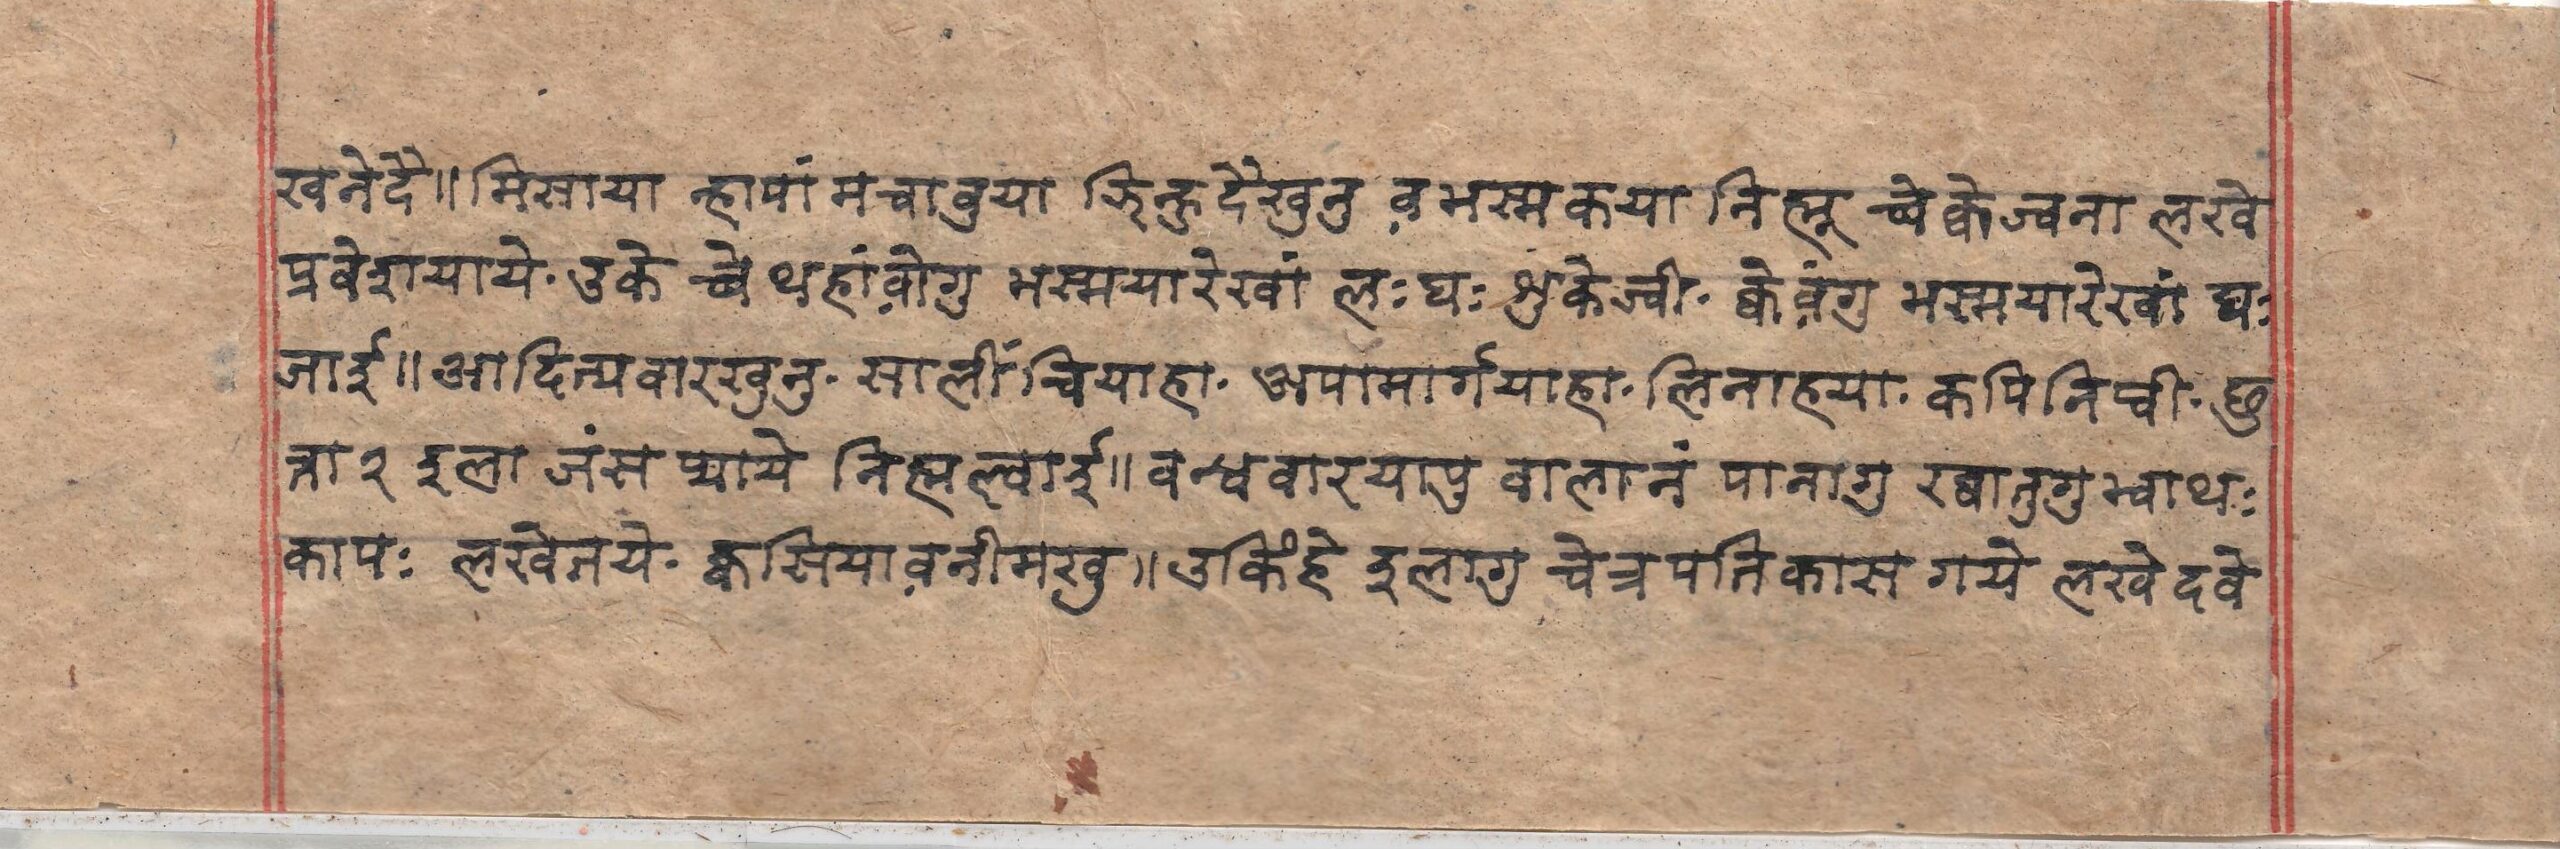 खनेदै॥ मिसाया न्हापां मचावुया झिन्हुदैखुनु व भस्मकया निह्म च्वे क्वे ज्वना लखे
प्रवेशयाये· उके च्वे थहांवोगु भस्मयारेखां लः घः थुकेज्वी· क्वेवंगु भस्मयारेखां घः
जाई॥ आदित्यवारखुनु· सालीं चियाहा· अपामार्गयाहा· लिनाहया· कपिनिच्वी· छु
त्रा २ इला जंस प्याये निह्मल्वाई॥ वन्धवारयापु वालानं पानागु रवातुगु भ्वाथः
कापः लखेतये· क्वसियावनीमखु॥ उकिंहे इलागु चेत्रपतिकास गये लखे दवे